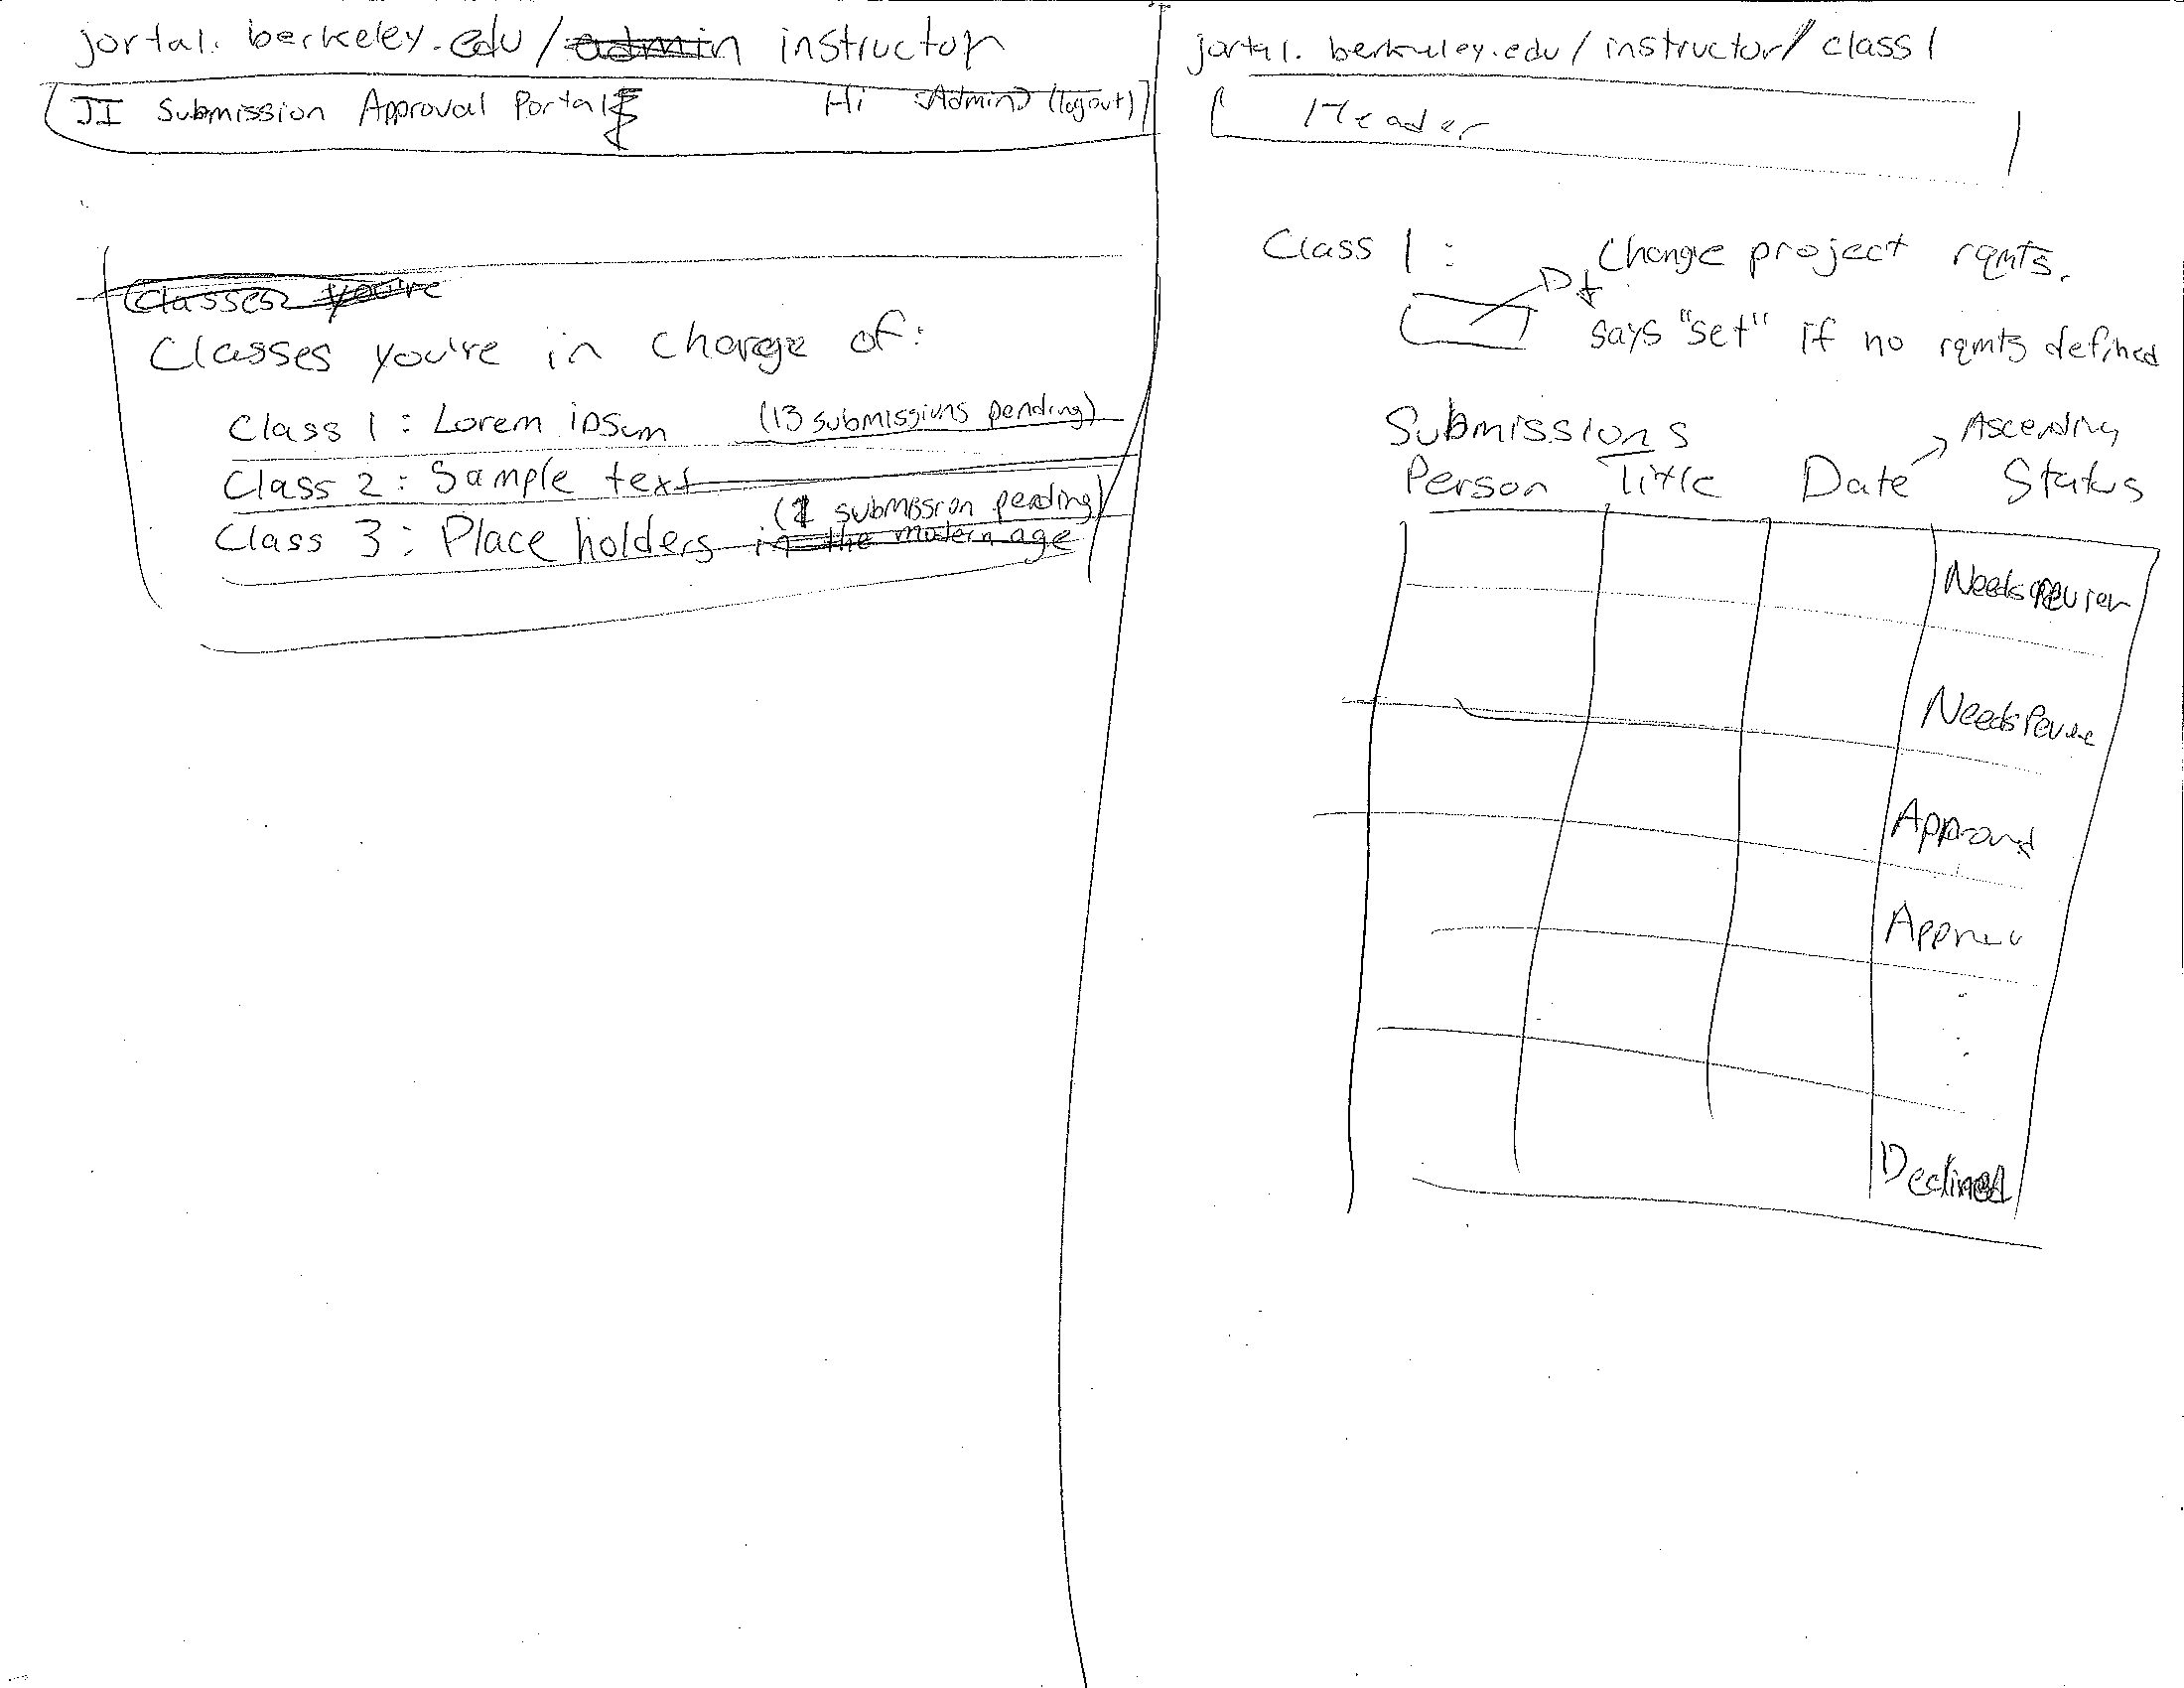 jortal.berkeley.edu/admin instructor
JI Submission Approval Portal Hi <Admin> (logout)
Classes you're
Classes you're in charge of:
Class 1: Lorem ipsum (13 submissions pending)
Class 2: Sample text
(1 submission pending)
Class 3: Place holders in the modern age
jortal.berkeley.edu/instructor/class1
Header
Class 1: Change project rqmts.
says "set" if no rqmts defined
Submissions Ascending
Person Title Date Status
Needs Review
Needs Revie
Approved
Approv
Declined